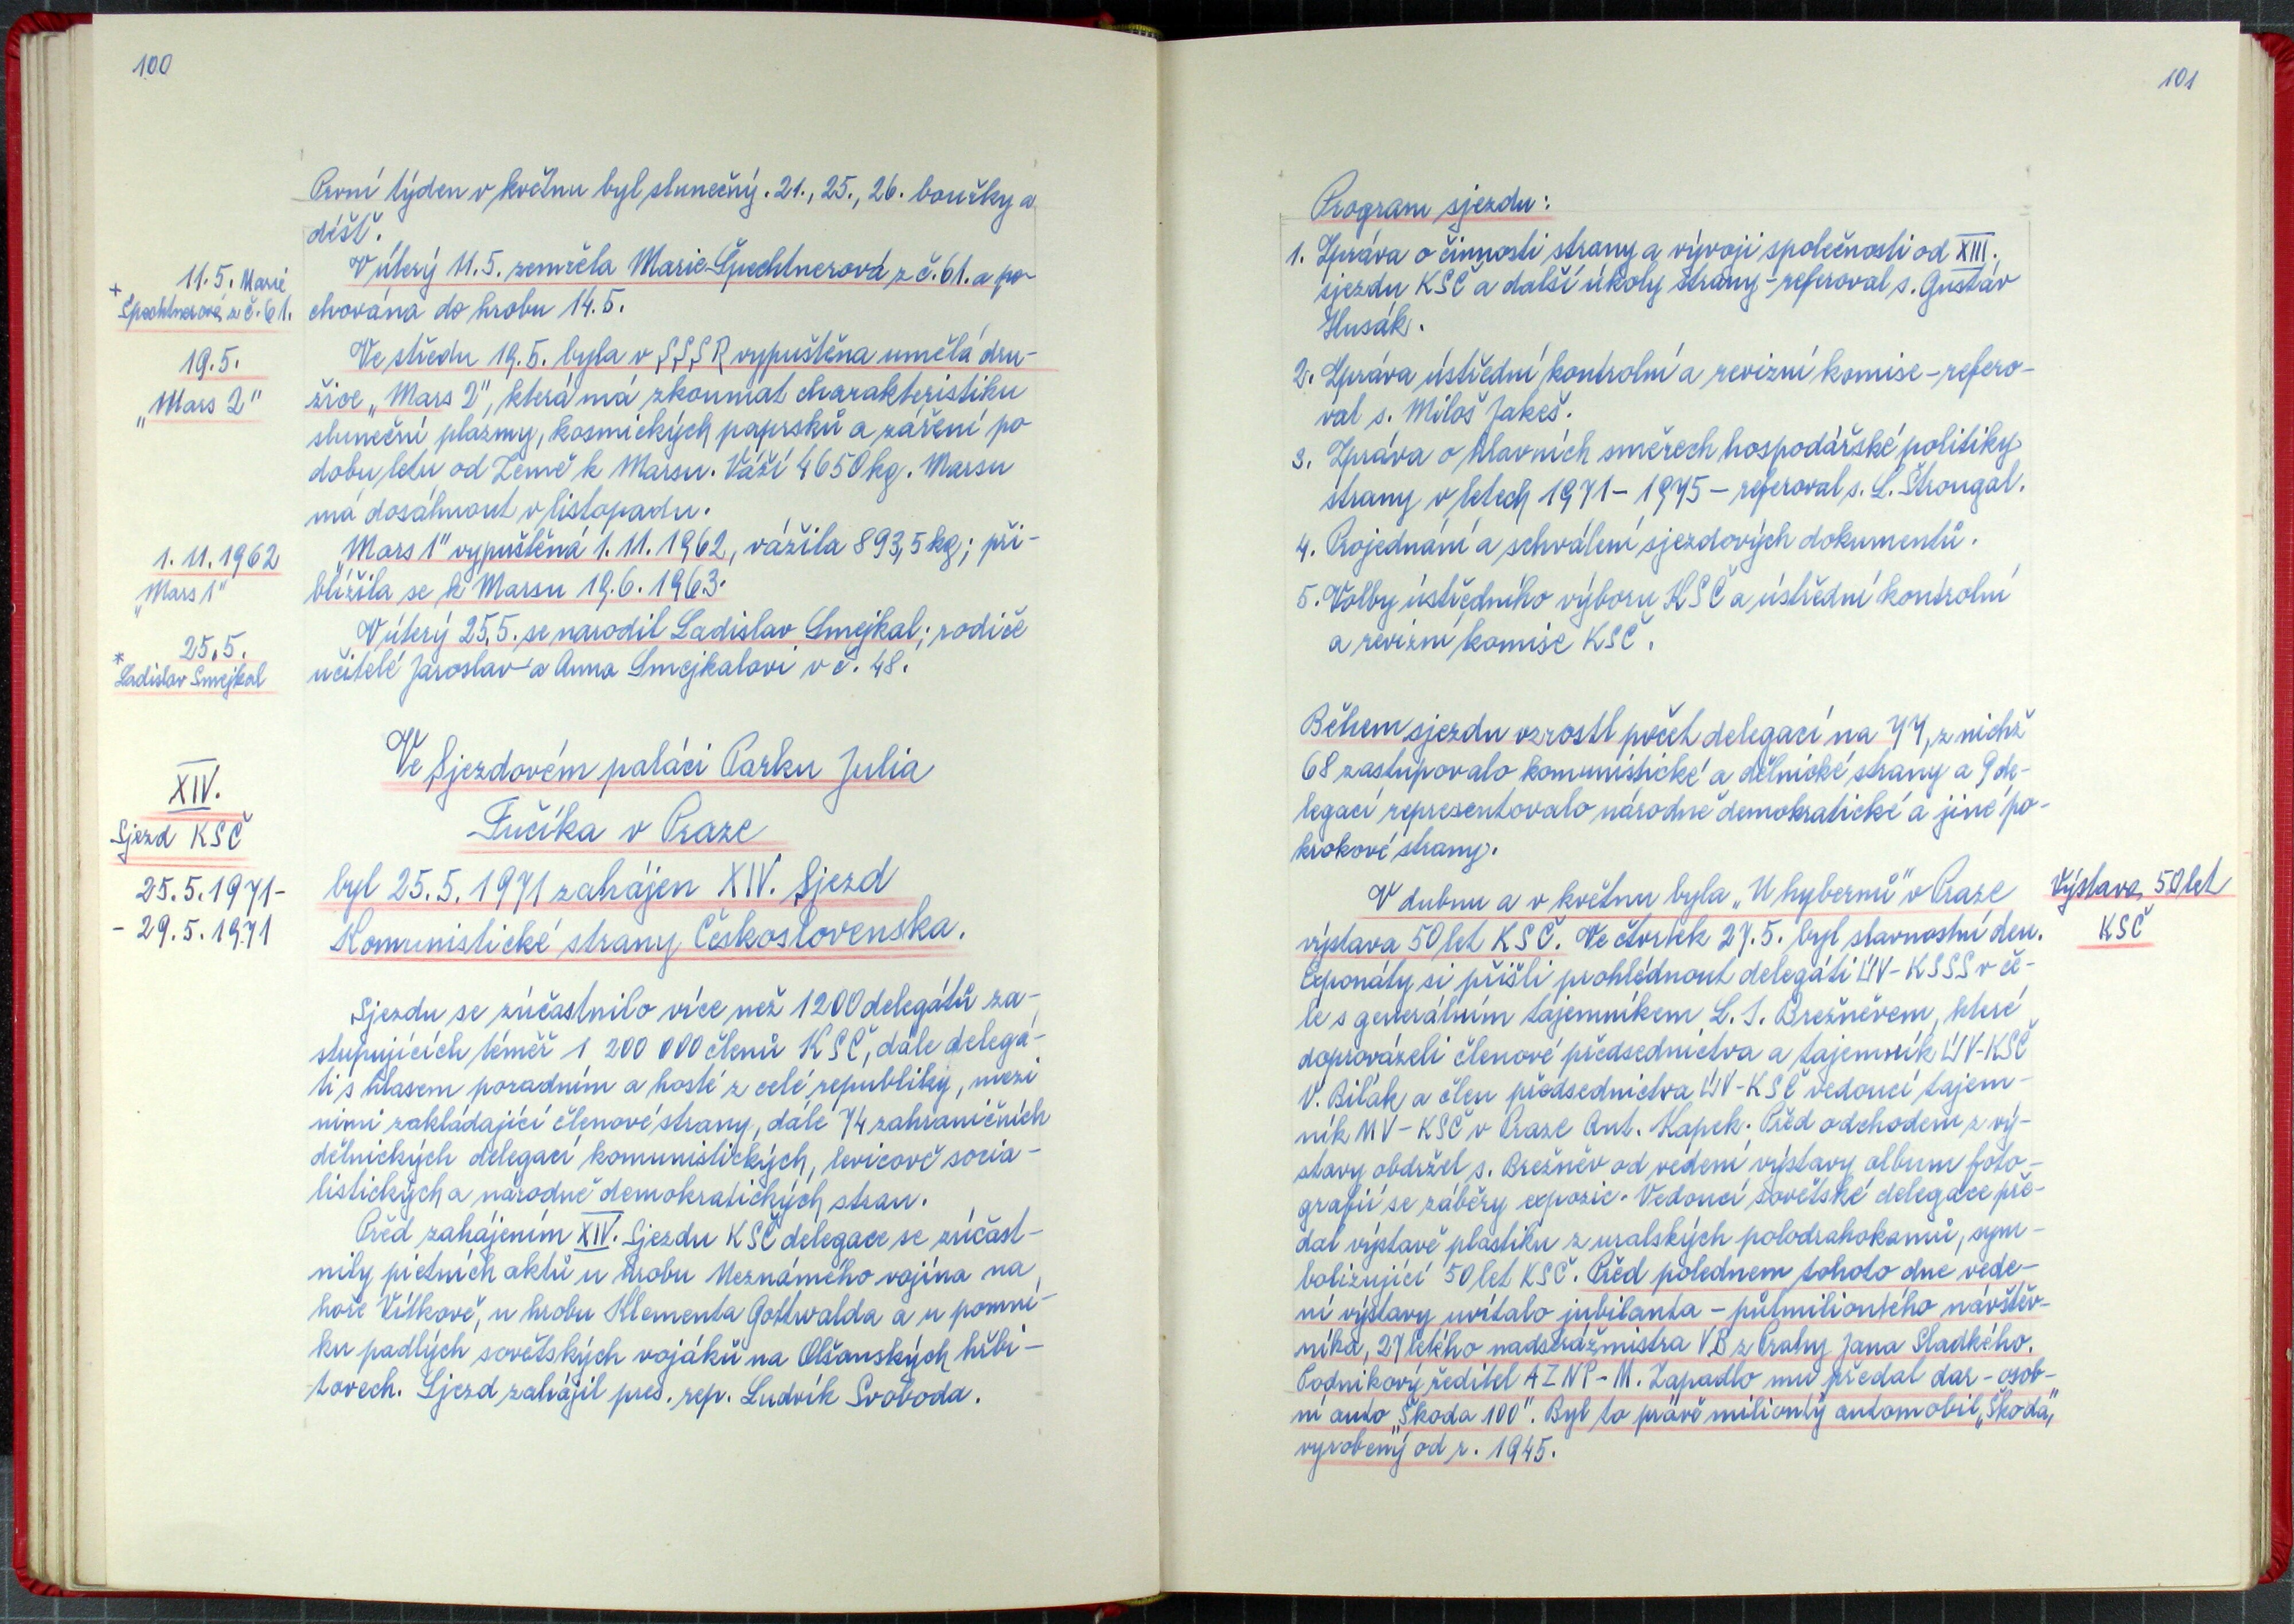 100
První týden v květnu byl slunečný. 21., 25., 26. bouřky a
déšť.
V úterý 11.5. zemřela Marie Špechtnerová z č. 61. a po-
chována do hrobu 14.5.
+ 11.5. Marie
Špechtnerová z č. 61.
Ve středu 19.5. byla v SSSR vypuštěna umělá dru-
žice „Mars 2", která má zkoumat charakteristiku
sluneční plazmy, kosmických paprsků a záření po
dobu letu od Země k Marsu. Váží 4650 kg. Marsu
má dosáhnout v listopadu.
19.5.
„Mars 2"
„Mars 1" vypuštěná 1.11.1962, vážila 893,5 kg; při-
blížila se k Marsu 19.6.1963.
1.11.1962
„Mars 1"
V úterý 25.5. se narodil Ladislav Smejkal; rodiče
učitelé Jaroslav a Anna Smejkalovi v č. 48.
25.5.
* Ladislav Smejkal
Ve Sjezdovém paláci Parku Julia
Fučíka v Praze
byl 25.5.1971 zahájen XIV. Sjezd
Komunistické strany Československa.
XIV.
Sjezd KSČ
25.5.1971-
- 29.5.1971
Sjezdu se zúčastnilo více než 1200 delegátů za-
stupujících téměř 1 200 000 členů KSČ, dále delegá-
ti s hlasem poradním a hosté z celé republiky, mezi
nimi zakládající členové strany, dále 74 zahraničních
dělnických delegací komunistických, levicově socia-
listických a národně demokratických stran.
Před zahájením XIV. Sjezdu KSČ delegace se zúčast-
nily pietních aktů u hrobu Neznámého vojína na
hoře Vítkově, u hrobu Klementa Gottwalda a u pomní-
ku padlých sovětských vojáků na Olšanských hřbi-
tovech. Sjezd zahájil pres. rep. Ludvík Svoboda.
101
Program sjezdu:
1. Zpráva o činnosti strany a vývoji společnosti od XIII.
sjezdu KSČ a další úkoly strany - referoval s. Gustáv
Husák.
2. Zpráva ústřední kontrolní a revizní komise - refero-
val s. Miloš Jakeš.
3. Zpráva o hlavních směrech hospodářské politiky
strany v letech 1971 - 1975 - referoval s. L. Štrougal.
4. Projednání a schválení sjezdových dokumentů.
5. Volby ústředního výboru KSČ a ústřední kontrolní
a revizní komise KSČ.
Během sjezdu vzrostl počet delegací na 77, z nichž
68 zastupovalo komunistické a dělnické strany a 9 de-
legací representovalo národně demokratické a jiné po-
krokové strany.
V dubnu a v květnu byla „U hybernů" v Praze
výstava 50 let KSČ. Ve čtvrtek 27.5. byl slavnostní den.
Exponáty si přišli prohlédnout delegáti ÚV-KSSS v če-
le s generálním tajemníkem L. I. Brežněvem, které
doprovázeli členové předsednictva a tajemník ÚV-KSČ
V. Bilak a člen předsednictva ÚV-KSČ vedoucí tajem-
ník MV-KSČ v Praze Ant. Kapek. Před odchodem z vý-
stavy obdržel s. Brežněv od vedení výstavy album foto-
grafií se záběry expozic. Vedoucí sovětské delegace pře-
dal výstavě plastiku z uralských polodrahokamů, sym-
bolizující 50 let KSČ. Před polednem tohoto dne vede-
ní výstavy uvítalo jubilanta - půlmiliontého návštěv-
níka, 27 letého nadstrážmistra VB z Prahy Jana Sladkého.
Podnikový ředitel AZNP - M. Zapadlo mu předal dar - osob-
ní auto „Škoda 100". Byl to právě miliontý automobil „Škoda",
vyrobený od r. 1945.
Výstava 50 let
KSČ